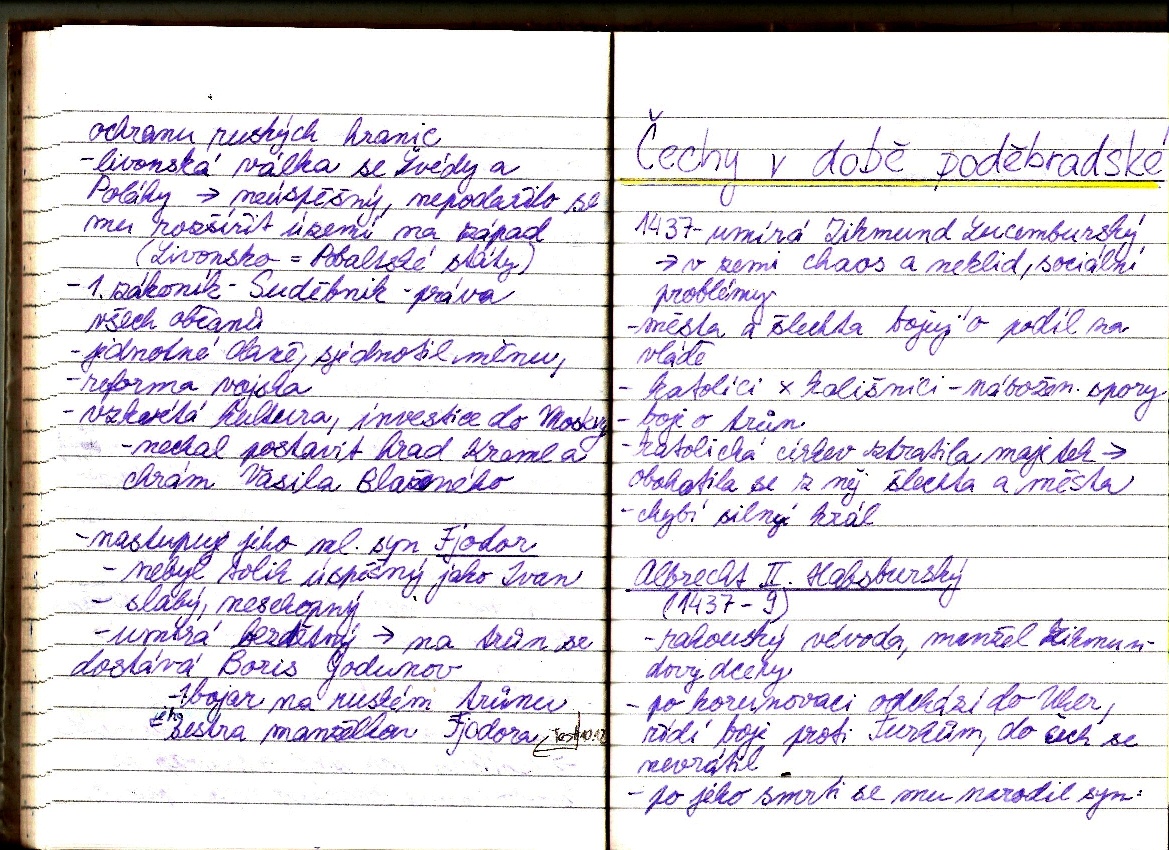 ochranu ruských hranic
-livonská válka se Švédy a
Poláky → neúspěšný, nepodařilo se
mu rozšířit území na západ
(Livonsko = Pobaltské státy)
- 1. zákoník - Suděbnik - práva
všech občanů
- jednotné daně, sjednotil měnu,
- reforma vojska
- vzkvétá kultura, investice do Moskvy
- nechal postavit hrad Kreml a
chrám Vasila Blaženého
- nastupuje jeho ml. syn Fjodor
- nebyl tolik úspěšný jako Ivan
- slabý, neschopný
- umírá bezdětný → na trůn se
dostává Boris Godunov
- 1. bojar na ruském trůnu
- jeho sestra manželkou Fjodora
Čechy v době poděbradské
1437 - umírá Zikmund Lucemburský
→ v zemi chaos a neklid, sociální
problémy
- města a šlechta bojují o podíl na
vládě
- katolíci x kališníci - nábožen. spory
- boj o trůn
- katolická církev ztratila majetek →
obohatila se z něj šlechta a města
- chybí silný král
Albrecht II. Habsburský
(1437 - 9)
- rakouský vévoda, manžel Zikmun-
dovy dcery
- po korunovaci odchází do Uher,
řídí boje proti Turkům, do Čech se
nevrátil
- po jeho smrti se mu narodil syn: